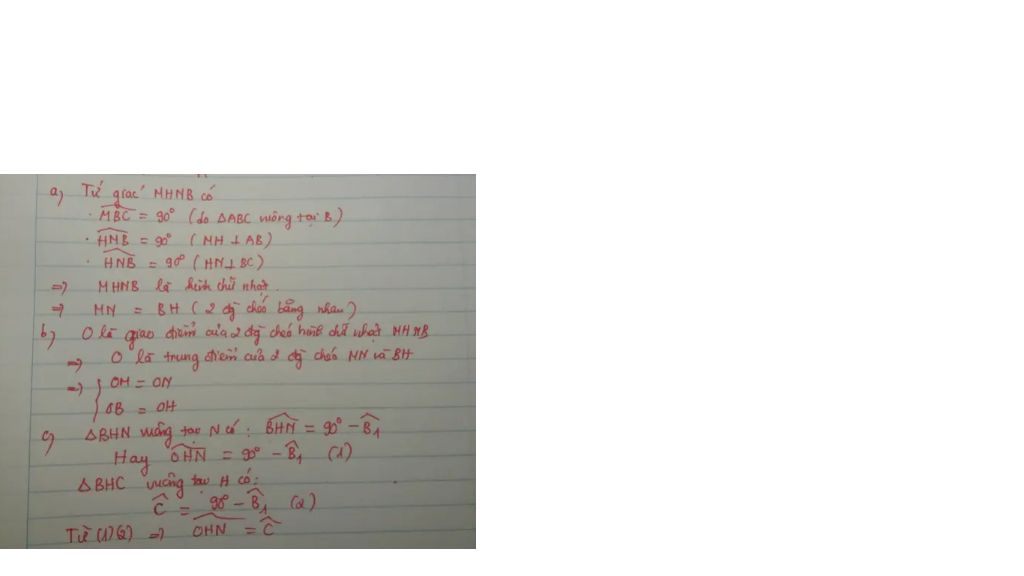 a) Tứ giác MHNB có
· \widehat{MBC} = 90° (do ΔABC vuông tại B)
· \widehat{HMB} = 90° (MH ⊥ AB)
· \widehat{HNB} = 90° (HN ⊥ BC)
=> MHNB là hình chữ nhật.
=> MN = BH (2 đg chéo bằng nhau)
b) O là giao điểm của 2 đg chéo hình chữ nhật MHNB
=> O là trung điểm của 2 đg chéo MN và BH
=> { OM = ON
OB = OH
c) ΔBHN vuông tại N có: \widehat{BHN} = 90° - \widehat{B}_1
Hay \widehat{OHN} = 90° - \widehat{B}_1 (1)
ΔBHC vuông tại H có:
\widehat{C} = 90° - \widehat{B}_1 (2)
Từ (1)(2) => \widehat{OHN} = \widehat{C}